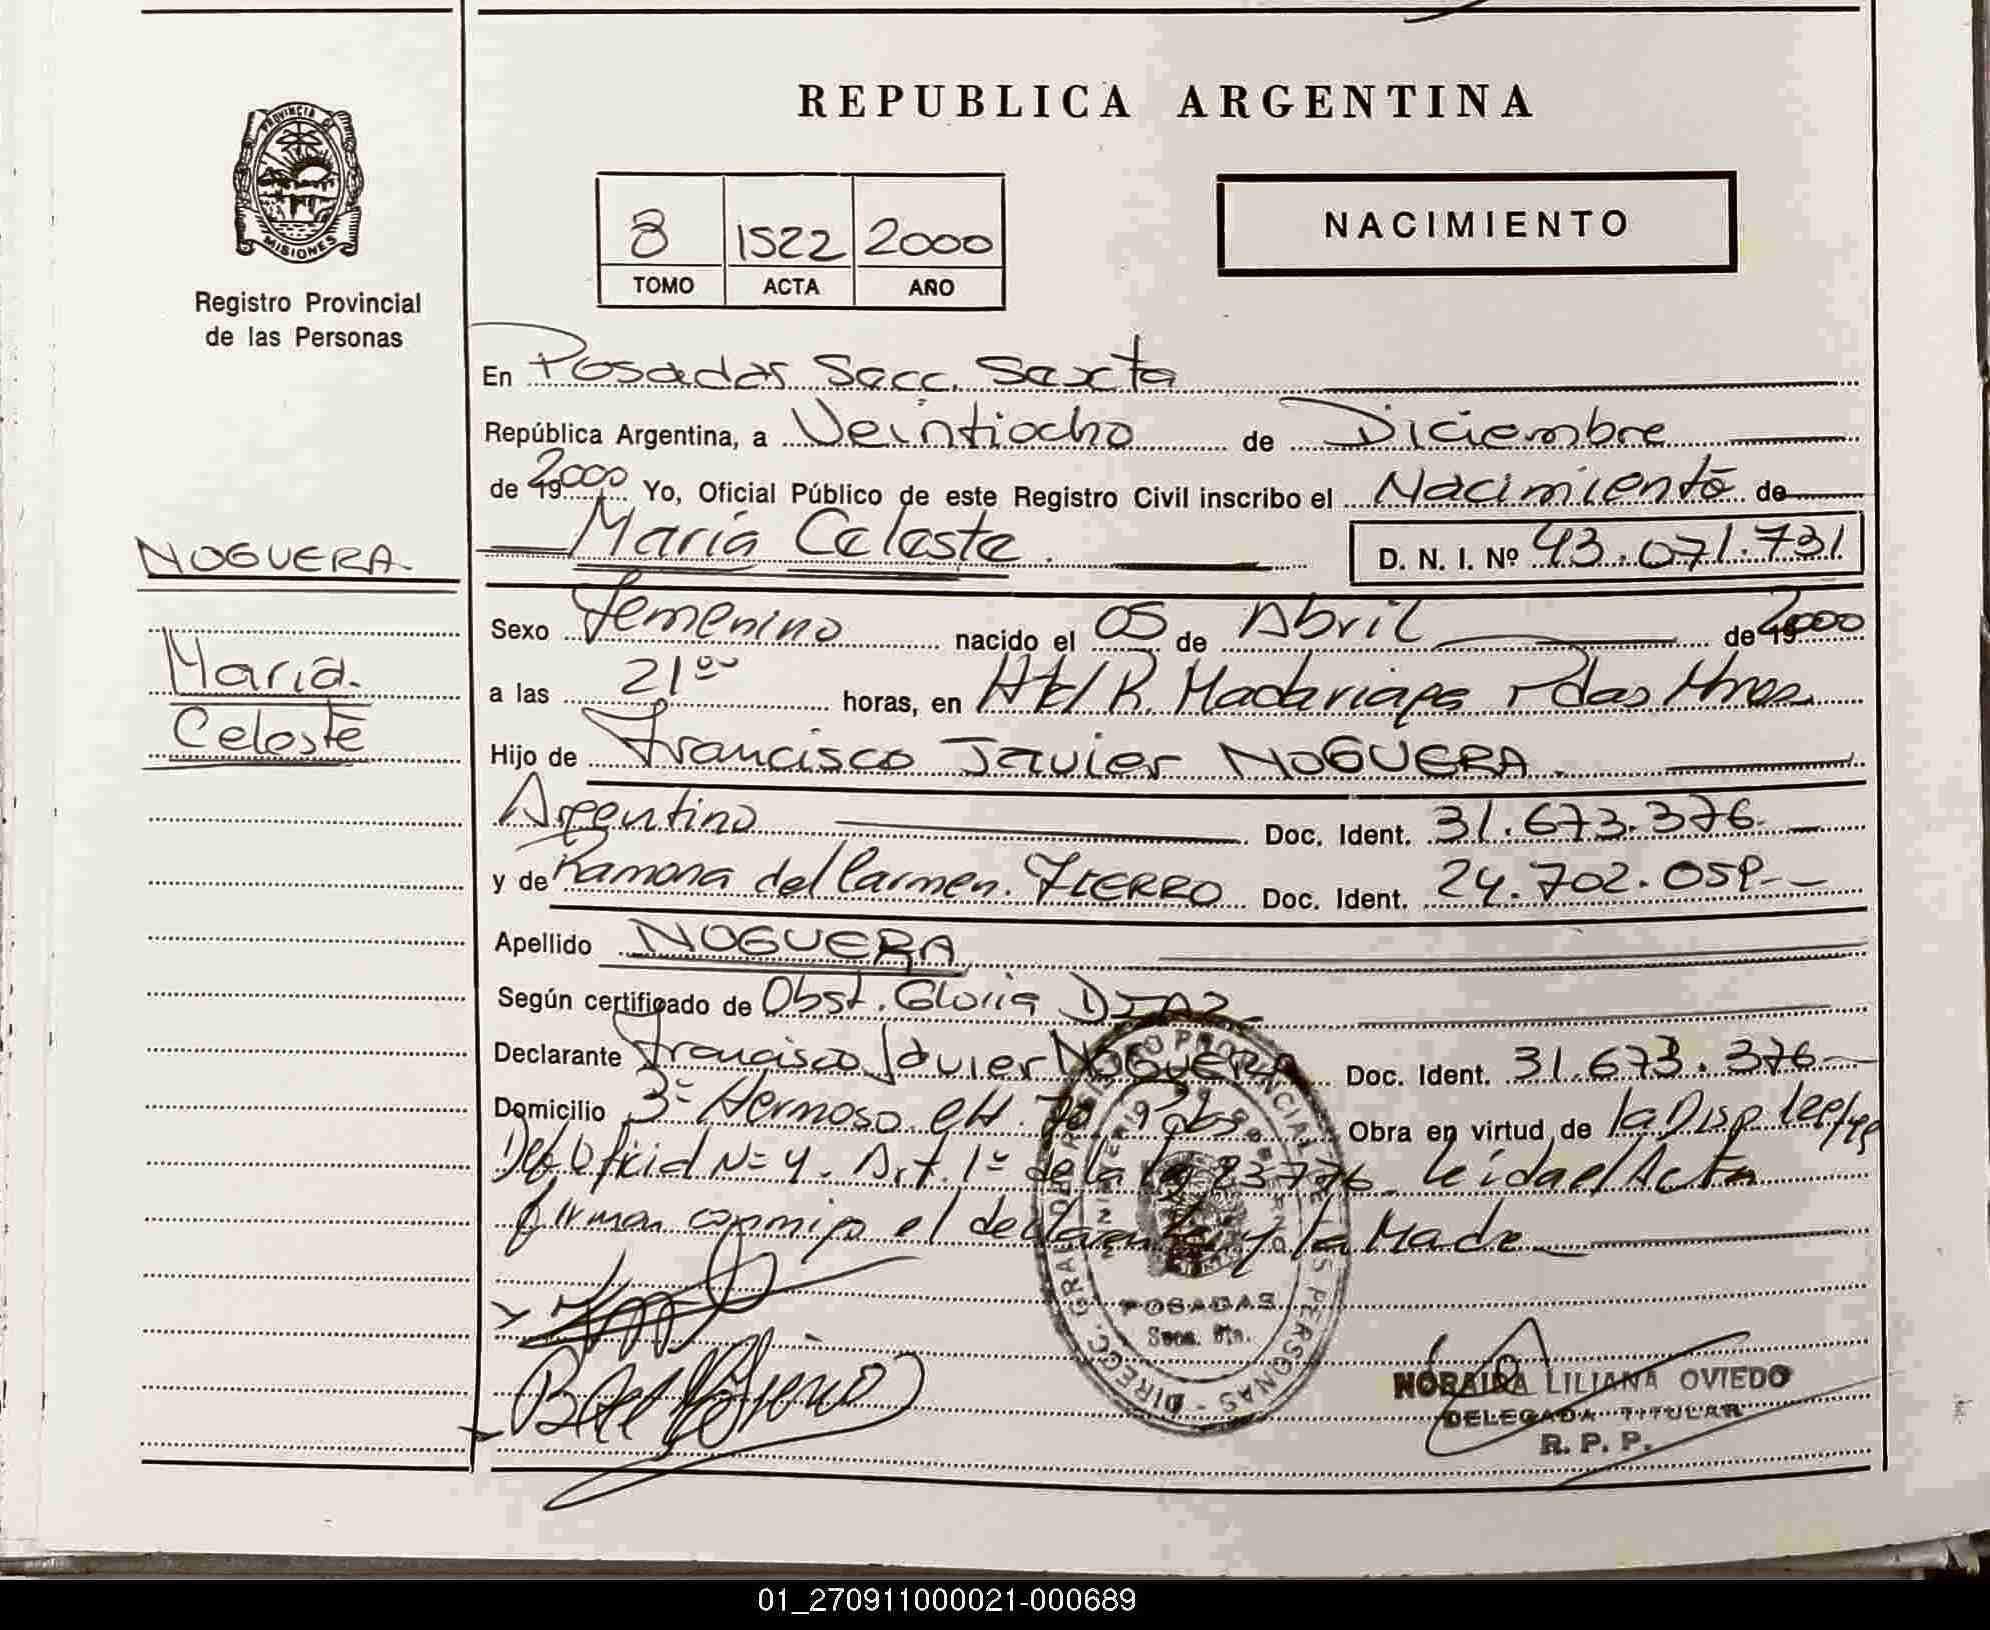 REPUBLICA ARGENTINA
PROVINCIA DE
MISIONES
Registro Provincial
de las Personas
8 1522 2000
TOMO ACTA AÑO
NACIMIENTO
En Posadas Secc. Sexta
República Argentina, a Veintiocho de Diciembre
de 2000 Yo, Oficial Público de este Registro Civil inscribo el Nacimiento de
María Celeste. D. N. I. Nº 43.071.731
NOGUERA
María
Celeste
Sexo Femenino nacido el 05 de Abril de 2000
a las 21⁰⁰ horas, en Htal R. Madariaga Pdas Mnes
Hijo de Francisco Javier NOGUERA
Argentino Doc. Ident. 31.673.376
y de Ramona del Carmen FIERRO Doc. Ident. 24.702.059
Apellido NOGUERA
Según certificado de Obst. Gloria DIAZ
Declarante Francisco Javier NOGUERA Doc. Ident. 31.673.376
Domicilio Hermoso Obra en virtud de la Disp
Oficial Nº 4. Art. 1º de la 23776 Leida el Acta
firman conmigo el declarante y la Madre
POSADAS
Secc. 6ta.
NORAIDA LILIANA OVIEDO
DELEGADA TITULAR
R. P. P.
01_270911000021-000689